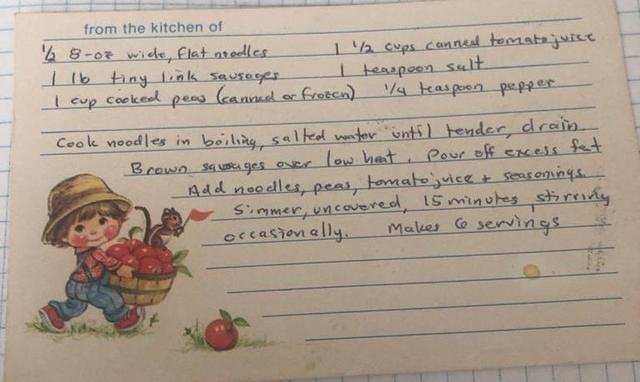 from the kitchen of
½ 8-oz wide, flat noodles 1 ½ cups canned tomato juice
1 lb tiny link sausages 1 teaspoon salt
1 cup cooked peas (canned or frozen) ¼ teaspoon pepper
Cook noodles in boiling, salted water until tender, drain.
Brown sausages over low heat. Pour off excess fat
Add noodles, peas, tomato juice + seasonings
Simmer, uncovered, 15 minutes, stirring
occasionally. Makes 6 servings